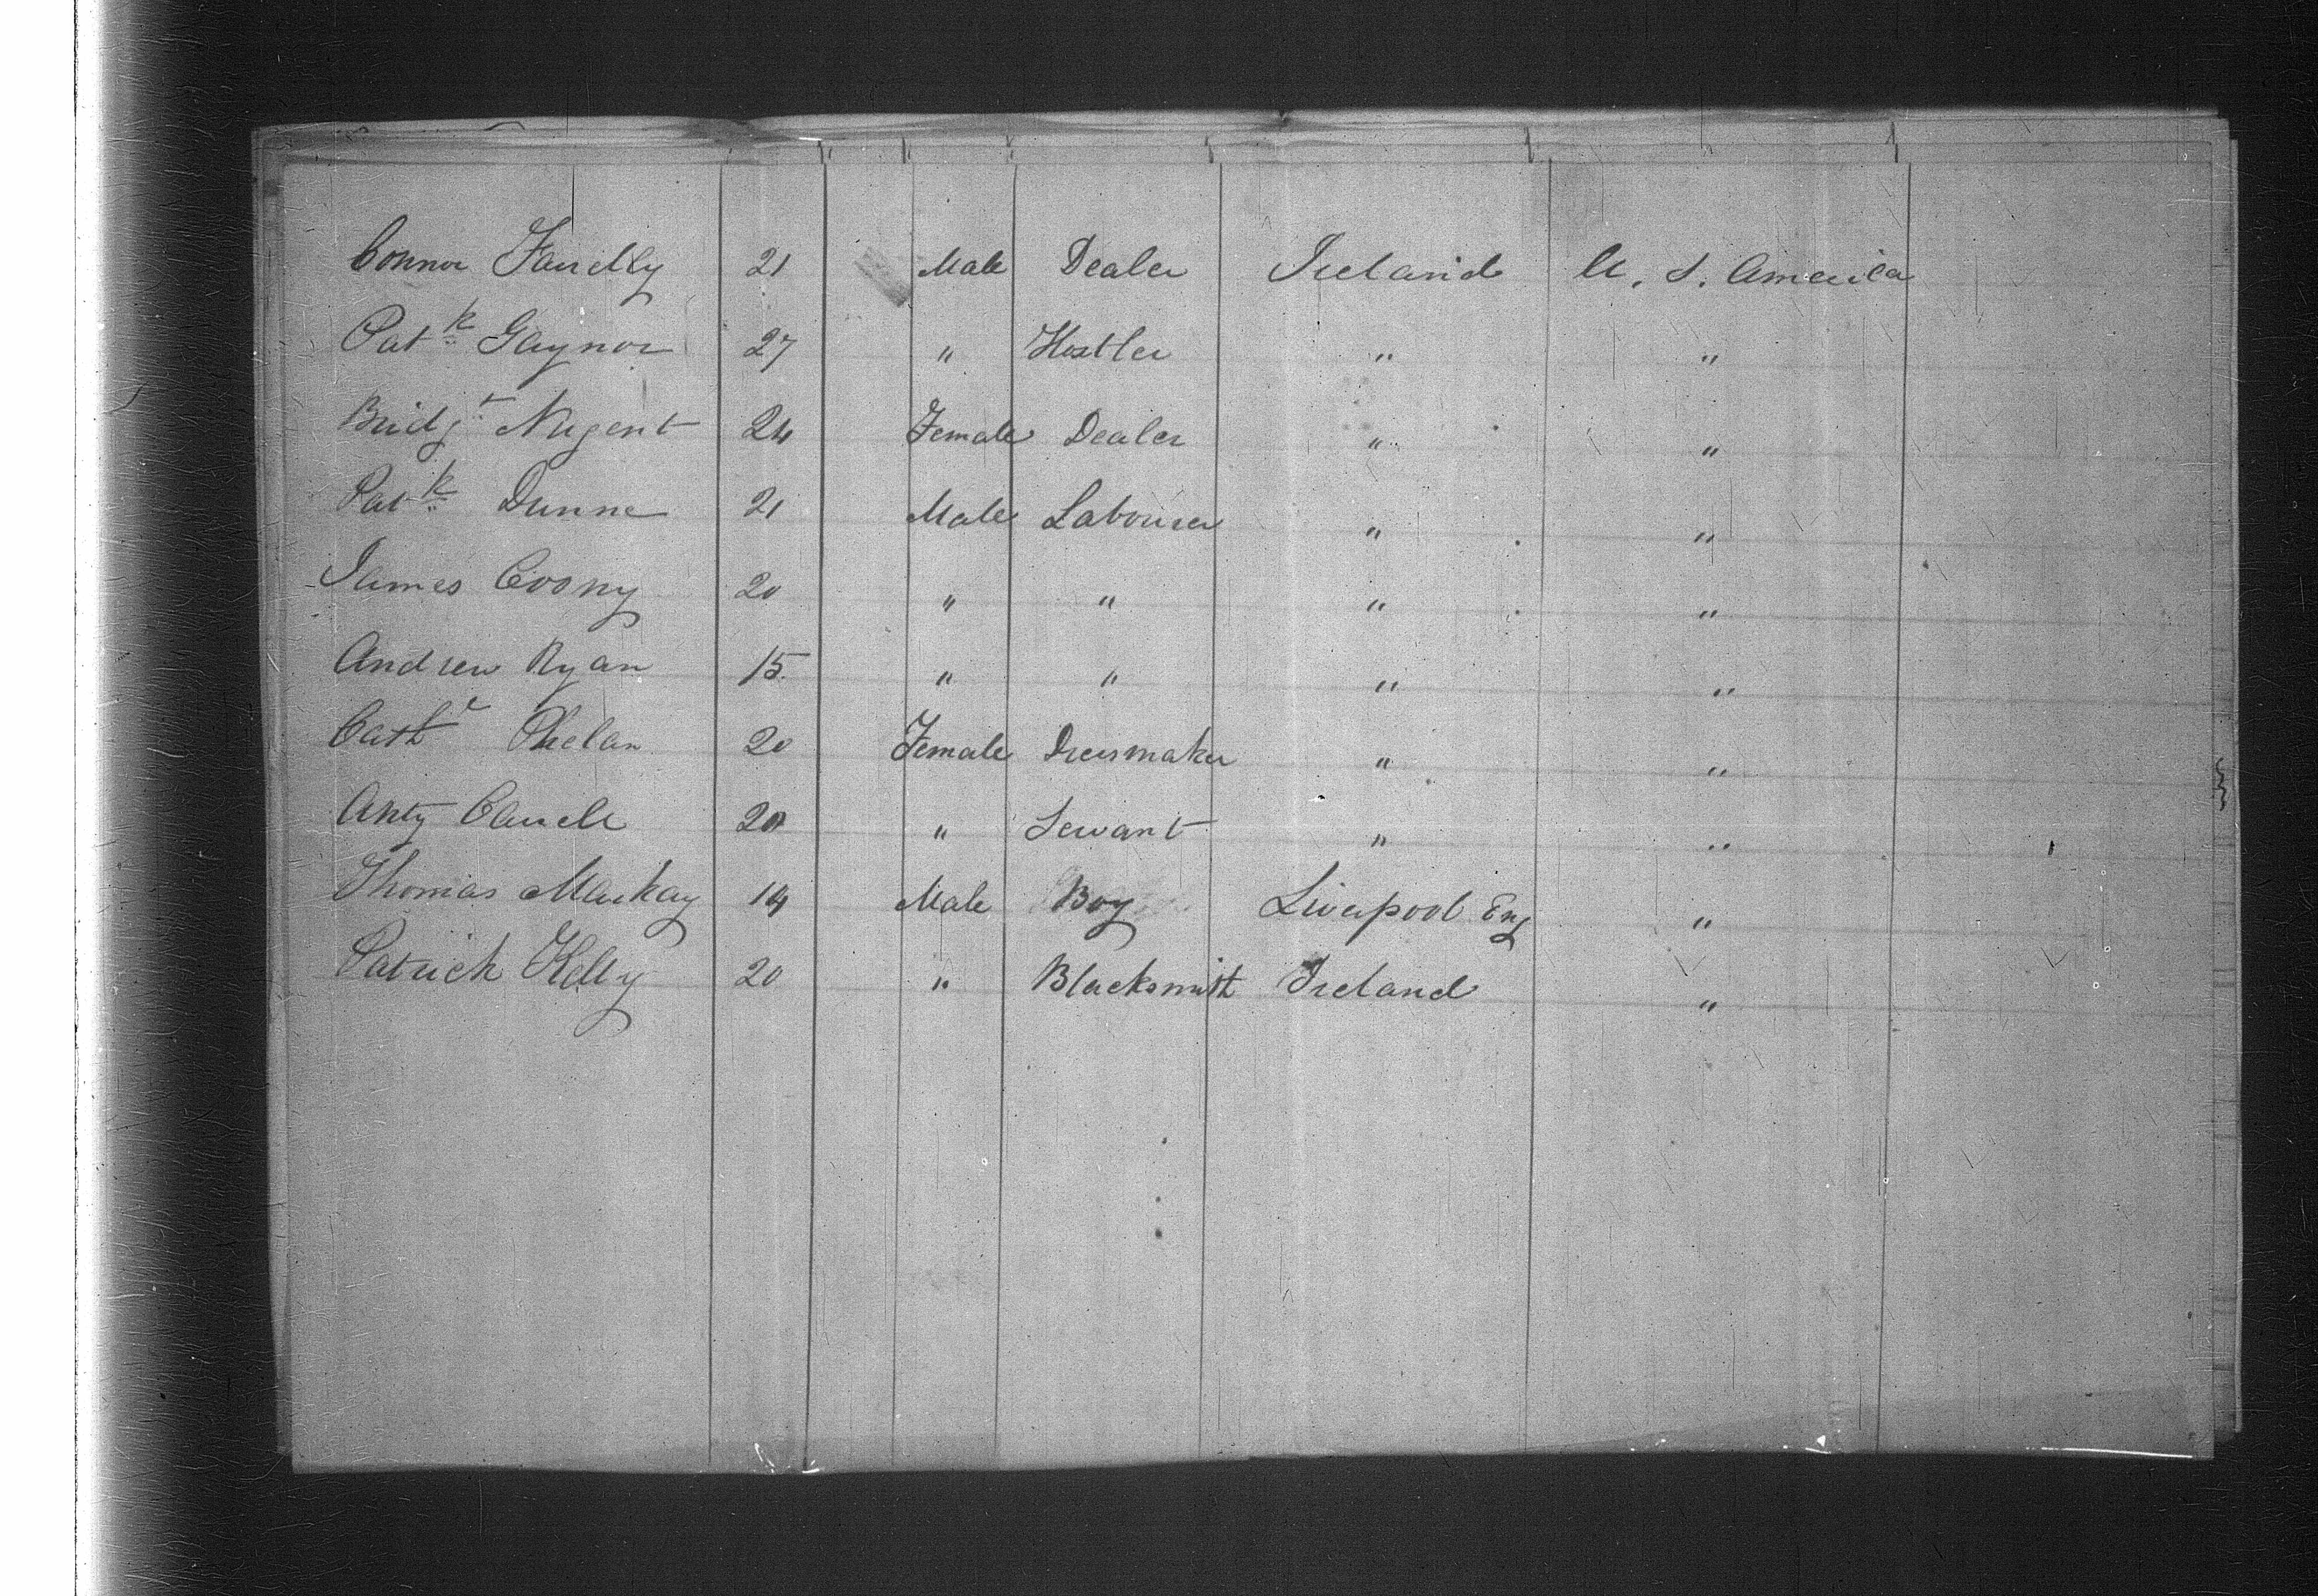 Connor Farrelly 21 Male Dealer Ireland U. S. America
Patk Gaynor 27 " Hostler " "
Bridgt Nugent 24 Female Dealer " "
Patk Dunne 21 Male Labourer " "
James Coony 20 " " " "
Andrew Ryan 15 " " " "
Cathe Phelan 20 Female Dressmaker " "
Anty 20 " Servant " "
Thomas Mackay 14 Male Boy Liverpool Eng "
Patrick Kelly 20 " Blacksmith Ireland "